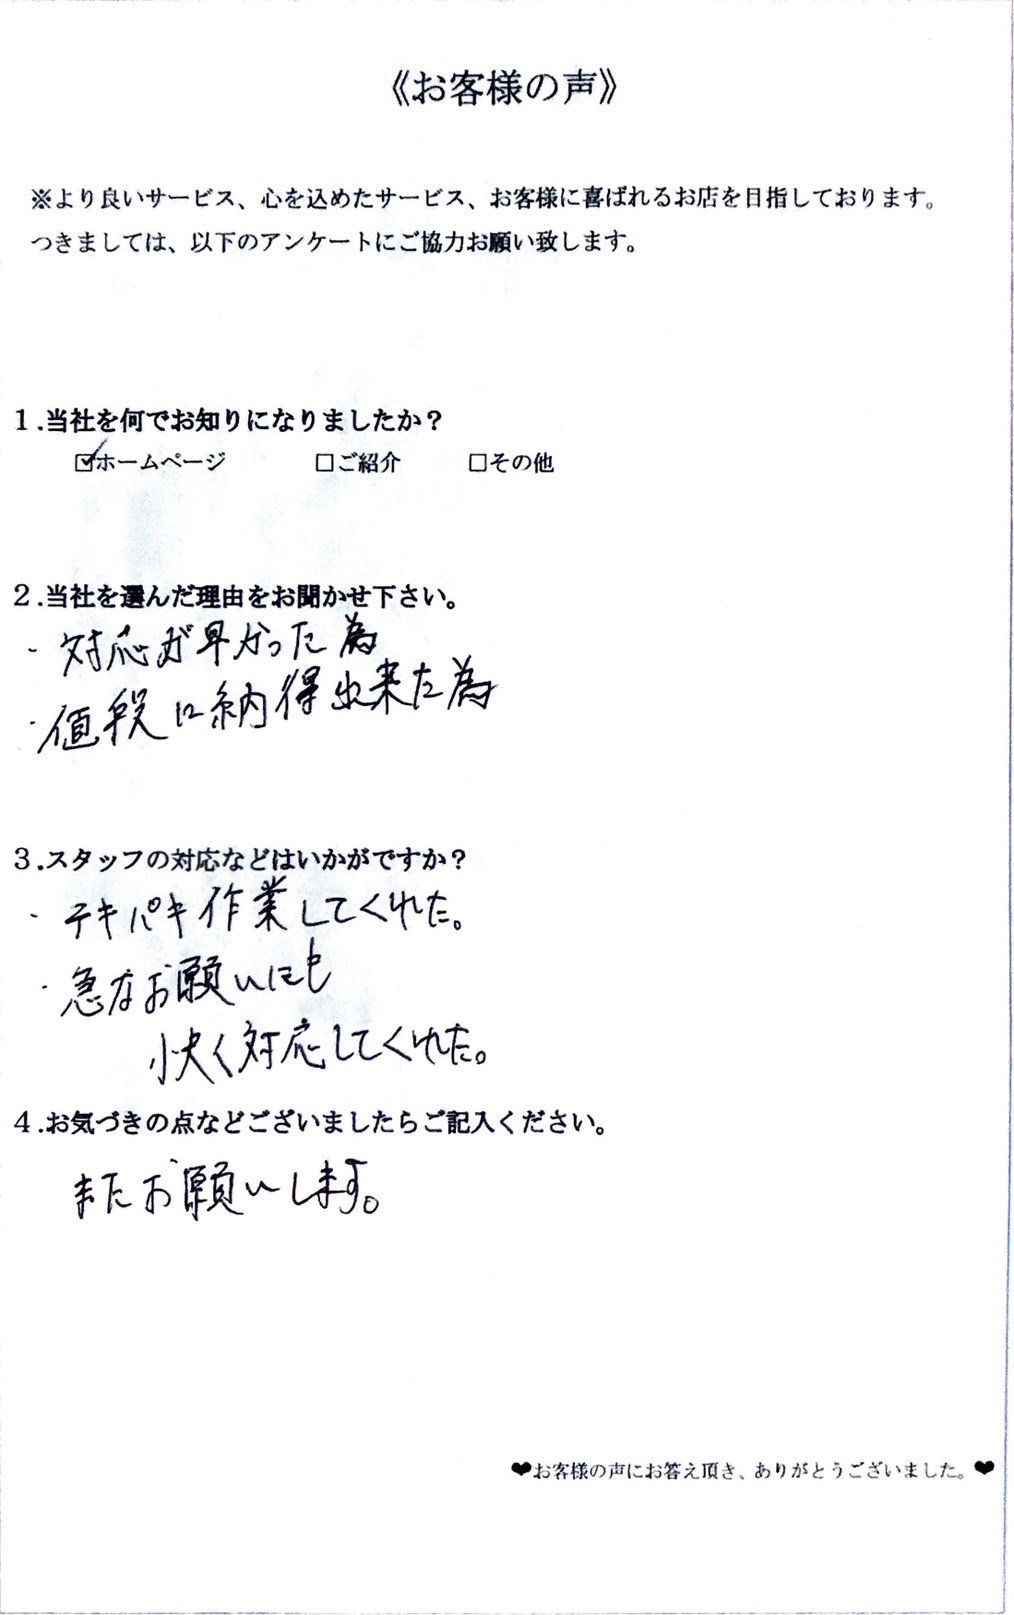 《お客様の声》
※より良いサービス、心を込めたサービス、お客様に喜ばれるお店を目指しております。
つきましては、以下のアンケートにご協力お願い致します。
1.当社を何でお知りになりましたか？
☑ホームページ □ご紹介 □その他
2.当社を選んだ理由をお聞かせ下さい。
・対応が早かった為
・値段に納得出来た為
3.スタッフの対応などはいかがですか？
・テキパキ作業してくれた。
・急なお願いにも
快く対応してくれた。
4.お気づきの点などございましたらご記入ください。
またお願いします。
❤お客様の声にお答え頂き、ありがとうございました。❤